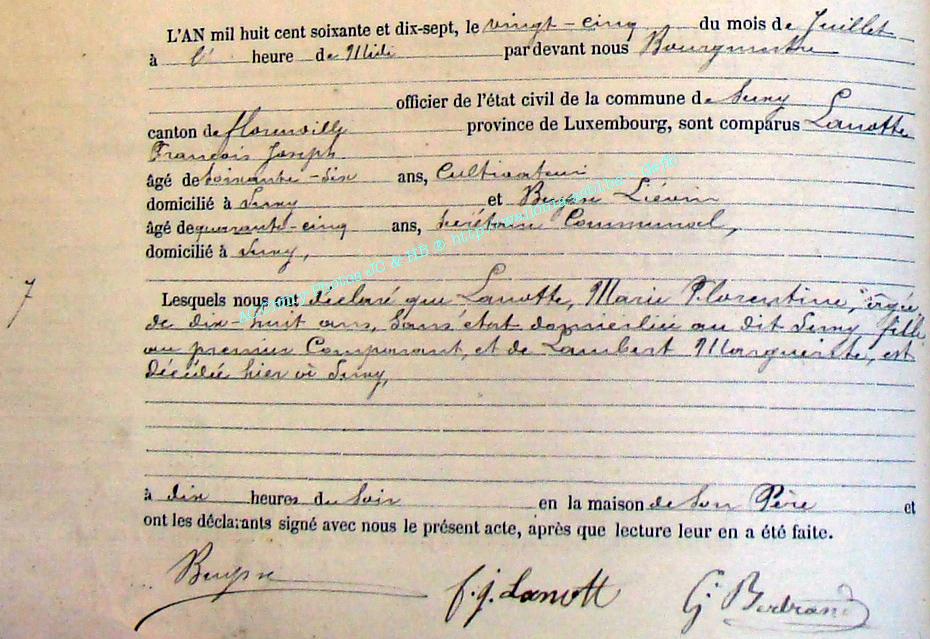 L'AN mil huit cent soixante et dix-sept, le vingt-cinq du mois de Juillet
à l' heure de Midi par devant nous Bourgmestre
officier de l'état civil de la commune de Suxy
canton de florenville province de Luxembourg, sont comparus Lanotte
François Joseph
âgé de soixante-dix ans, Cultivateur
domicilié à Suxy et Buysse Liévin
âgé de quarante-cinq ans, secrétaire Communal,
domicilié à Suxy,
7
Lesquels nous ont déclaré que Lanotte, Marie Florentine, agée
de dix-huit ans, Sans état domiciliée au dit Suxy fille
au premier Comparant, et de Lambert Marguerite, est
décédée hier à Suxy,
à dix heures du Soir en la maison de Son Père et
ont les déclarants signé avec nous le présent acte, après que lecture leur en a été faite.
Buysse f. j. Lanott Bertrand